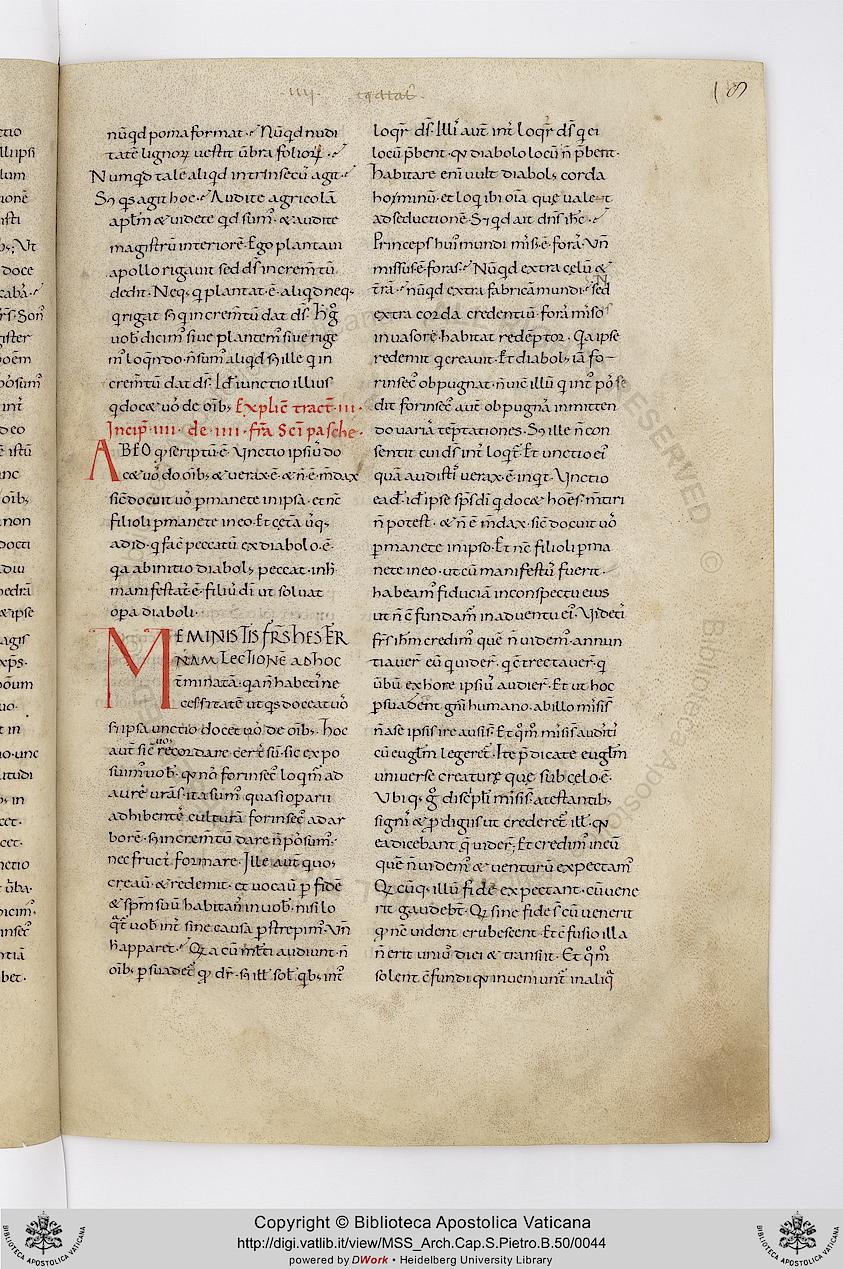 .iiii.
nūqd poma format. Nūqd nudi
tatē lignoꝝ uestit ūbra folioꝝ.
Numqd tale aliqd intrinsecū agit.
S; qs agit hoc. Audite agricolā
aplm̄ & uidete qd sum'. & audite
magistrū interiorē. Ego plantaui
apollo rigauit sed ds̄ increm̄tū
dedit. Neq; q plantat.ē. aliqd neq;
q rigat s; q increm̄tū dat ds̄.
uob' dicim' siue plantem' siue rige
m' loqndo. n̄ sum' aliqd s; ille q in
crem̄tū dat ds̄. Id ē iunctio illius
q doc& uo' de oīb; Explic̄ tract. iii.
Incip̄. iiii. de. iiii. fr̄a Sc̄i pasche.
AB EO q' scriptū ē. Vnctio ipsiu' do
c& uo' de oīb; & uerax.ē. & n̄.ē. m̄dax
sic̄ docuit uo' p̄manete in ipsa. et nc̄
filioli p̄manete in eo. Et cet̄a ūq;
ad id. q facē peccatū ex diabolo.ē.
qa ab initio diabol' peccat. in h'
manifestat'.ē. filiu' dī ut soluat
op̄a diaboli.
MEMINISTIS FR̄S HESTER
NAM LECTIONĒ AD HOC
t̄minatā. qa n̄ habetis ne
cessitatē ut qs doceat uo'
s; ipsa unctio docet uo' de oīb; hoc
aut̄ sic̄ uos recordare cert' su'. sic expo
suim' uob'. q' no' forinsec' loqm̄ ad
aurē urās. ita sum' quasi op̄arii
adhibentē culturā forinsec' ad ar
borē. s; increm̄tū dare n̄ possum'.
nec fruct' formare. Ille aut̄ qui uos
creau' & redemit. et uocau' p fidē
& sp̄m suū habitan' in uob'. nisi lo
q̄t' uob' int' sine causa p̄strepim'. Vn̄
h' apparet. Qa cū m̄lti audiunt. n̄
oīb; p̄suadet' q' dr̄. s; ill' sol' qb; int'
loqr̄ ds̄. Illi' aut̄ int' loqr̄ ds̄ q ei
locū p̄bent. q' diabolo locū n̄ p̄bent.
habitare eni' uult diabol' corda
hominū. et loq ibi oīa que ualent
ad seductionē. S; qd ait dn̄s ih̄c.
Princeps hui' mundi mis'.ē. fora'. Vn̄
missus.ē. foras. Nūqd extra celū &
t̄rā. nūqd extra fabricā mundi. sed
extra corda credentiū. fora' misso
inuasore. habitat redēptor. Qa ipse
redemit q creauit. Et diabol' iā fo
rinsec' obpugnat. n̄ uic̄ illū q int' po'se
dit forinsec' aut̄ obpugna' inmitten
do uaria' tēptationes. S; ille n̄ con
sentit cui ds̄ int' loqt'. Et unctio ei'
quā audisti' uerax.ē. inqt. Vnctio
ead'. id' ipse sps̄ dī q doc& hoēs m̄tiri
n̄ potest. & n̄ ē m̄dax. sic̄ docuit uo'
p̄manete in ipso. Et nc̄ filioli p̄ma
nete in eo. ut cū manifestu' fuerit.
habeam' fiduciā in conspectu eius
ut n̄ c̄fundam' in aduentu ei'. Videti'
frs̄ ih̄m credim' quē n̄ uidem'. annun
tiauer' eū q uider'. q c̄trectauer'. q
ūbū ex hore ipsiu' audier'. Et ut hoc
p̄suadent gn̄i humano. ab illo missi s'
n̄ a se ipsis ire ausi s'. Et q'm' missi s' auditi'
cū euglm̄ legeret'. Ite p̄dicate euglm̄
uniuerse creature que sub celo.ē.
Vbiq; g' disc̄pli missi s'. atestantib;
signi' & p̄digiis ut crederet' ill'. q'
ea dicebant q uider'. Et credim' in eū
quē n̄ uidem' & uenturū expectam'
Qcūq; illū fide expectant. cū uene
rit gaudebt̄. Q sine fide s' cū uenerit
q' nc̄ uident erubescent. Et c̄fusio illa
n̄ erit uniu' diei & transiit. Et q'm'
solent c̄fundi q' inueniunt' in aliq'
RESERVED ©
Copyright © Biblioteca Apostolica Vaticana
http://digi.vatlib.it/view/MSS_Arch.Cap.S.Pietro.B.50/0044
powered by DWork • Heidelberg University Library
BIBLIOTECA APOSTOLICA VATICANA
BIBLIOTECA APOSTOLICA VATICANA